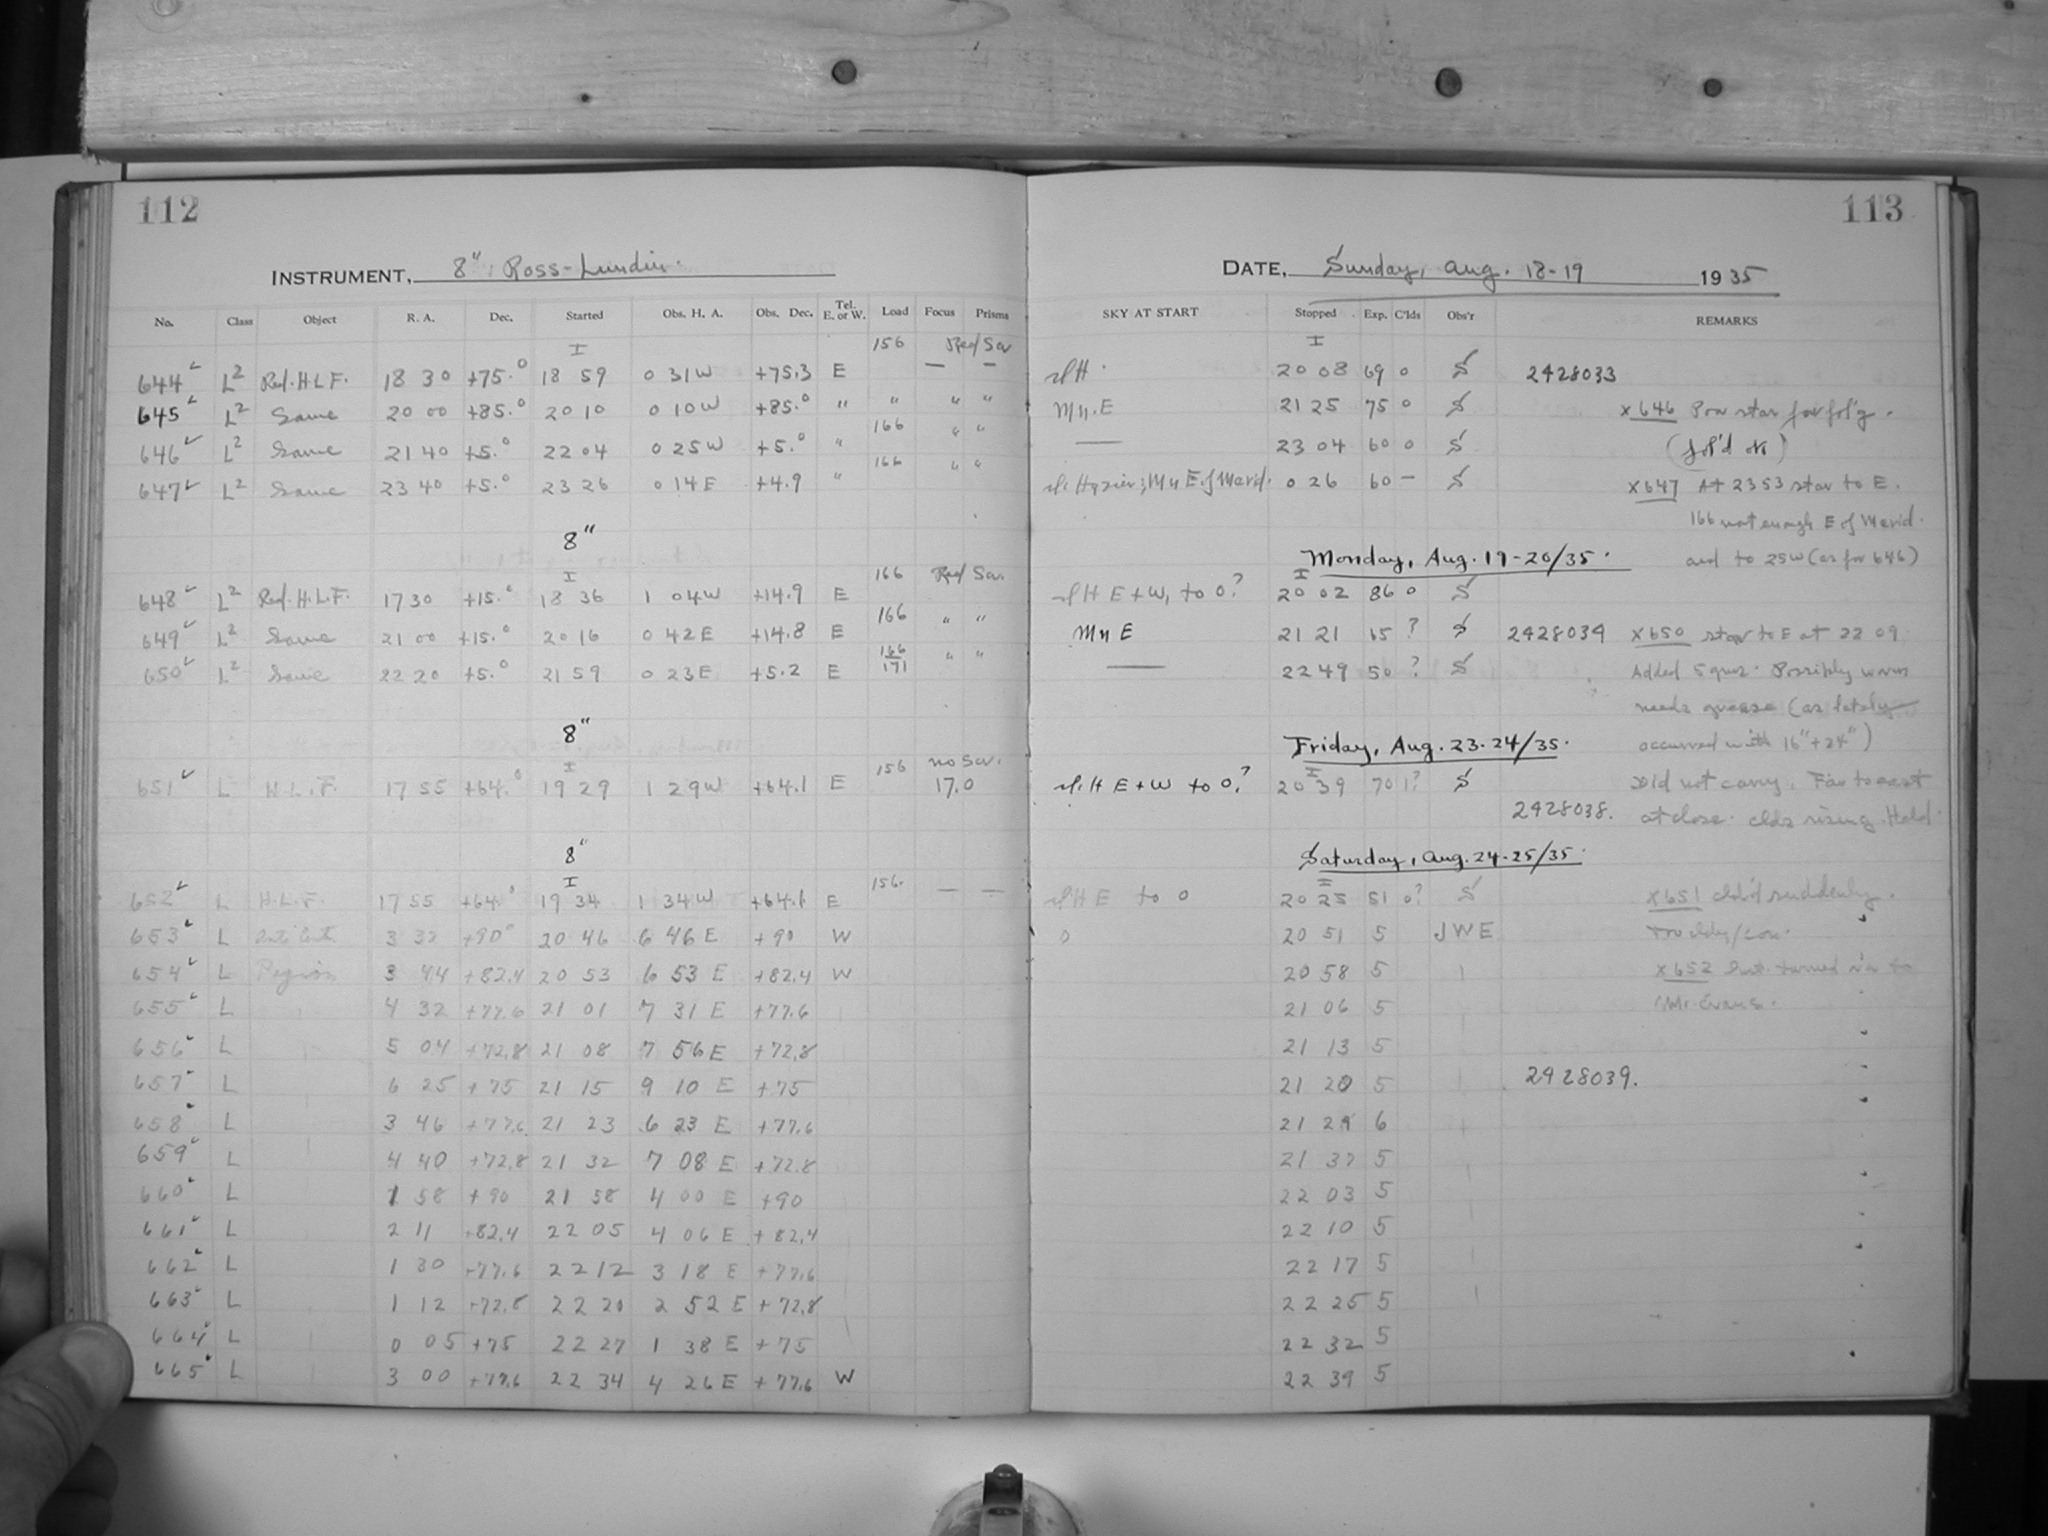 112
113
INSTRUMENT, 8" Ross-Lundin.
DATE, Sunday, Aug. 18-19 1935
No. Class Object R. A. Dec. Started Obs. H. A. Obs. Dec. Tel. E. or W. Load Focus Prisms
SKY AT START Stopped Exp. C'lds Obs'r REMARKS
I 156 Red Scr I
644 L2 Red. H.L.F. 18 30 +75.0 18 59 0 31 W +75.3 E — — H. 20 08 69 0 S 2428033
645 L2 Same 20 00 +85.0 20 10 0 10 W +85.0 " " " " Mn. E 21 25 75 0 S X646 Poor star for fol'g.
646 L2 Same 21 40 +5.0 22 04 0 25 W +5.0 " 166 " " — 23 04 60 0 S (fol'd ok)
647 L2 Same 23 40 +5.0 23 26 0 14 E +4.9 " 166 " " Mn E of Merid. 0 26 60 — S X647 At 2353 star to E.
166 not enough E of Merid.
8" Monday, Aug. 19-20/35. and to 25W (as for 646)
I 166 Red Scr. I
648 L2 Red. H.L.F. 17 30 +15.0 18 36 1 04 W +14.9 E H E + W, to 0? 20 02 86 0 S
649 L2 Same 21 00 +15.0 20 16 0 42 E +14.8 E 166 " " Mn E 21 21 15 ? S 2428034 X650 star to E at 22 09
650 L2 Same 22 20 +5.0 21 59 0 23 E +5.2 E 166 171 " " — 22 49 50 ? S Added 5 Possibly worm
needs grease (as lately
8" Friday, Aug. 23-24/35. occurred with 16" + 24")
I 156 no Scr. I
651 L H.L.F. 17 55 +64.0 19 29 1 29 W +64.1 E 17.0 H E + W to 0? 20 39 70 1? S Did not carry. Far to east
2428038. at close. clds rising. Held
8" Saturday, Aug. 24-25/35.
I 156. I
652 L H.L.F. 17 55 +64.0 19 34 1 34 W +64.1 E — — H E to 0 20 25 51 0? S X651 cld'd suddenly.
653 L 3 32 +90° 20 46 6 46 E +90 W 0 20 51 5 JWE Too cldy/con.
654 L Region 3 44 +82.4 20 53 6 53 E +82.4 W 20 58 5 X652 Inst. turned o'r to
655 L 4 32 +77.6 21 01 7 31 E +77.6 21 06 5 Mr. Evans.
656 L 5 04 +72.8 21 08 7 56 E +72.8 21 13 5
657 L 6 25 +75 21 15 9 10 E +75 21 20 5 2428039.
658 L 3 46 +77.6 21 23 6 23 E +77.6 21 29 6
659 L 4 40 +72.8 21 32 7 08 E +72.8 21 37 5
660 L 1 58 +90 21 58 4 00 E +90 22 03 5
661 L 2 11 +82.4 22 05 4 06 E +82.4 22 10 5
662 L 1 30 +77.6 22 12 3 18 E +77.6 22 17 5
663 L 1 12 +72.8 22 20 2 52 E +72.8 22 25 5
664 L 0 05 +75 22 27 1 38 E +75 22 32 5
665 L 3 00 +77.6 22 34 4 26 E +77.6 W 22 39 5